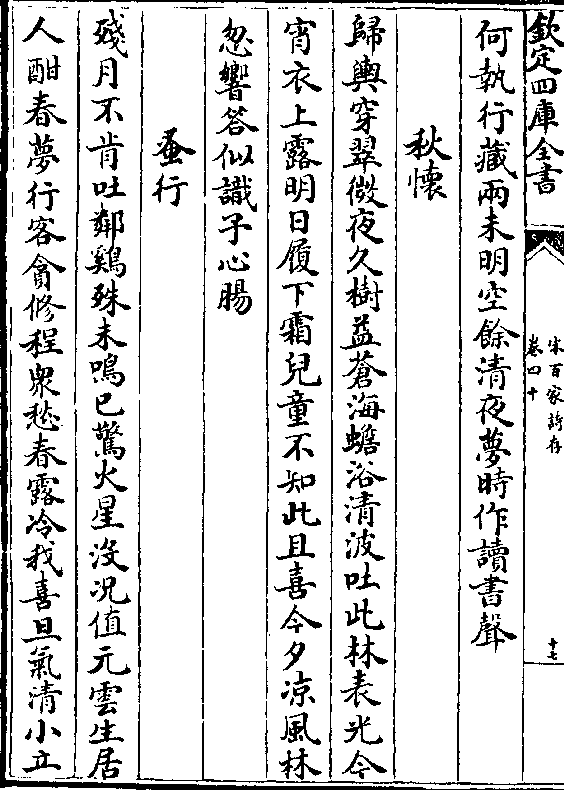 欽定四庫全書
宋百家詩存
卷四十
十七
何執行藏兩未明空餘清夜夢時作讀書聲
秋懷
歸輿穿翠微夜久樹益蒼海蟾浴清波吐此林表光今
宵衣上露明日履下霜兒童不知此且喜今夕凉風林
忽響答似識子心腸
蚤行
殘月不肯吐鄰鷄殊未鳴已驚火星沒况值元雲生居
人酣春夢行客貪修程衆愁春露冷我喜旦氣清小立